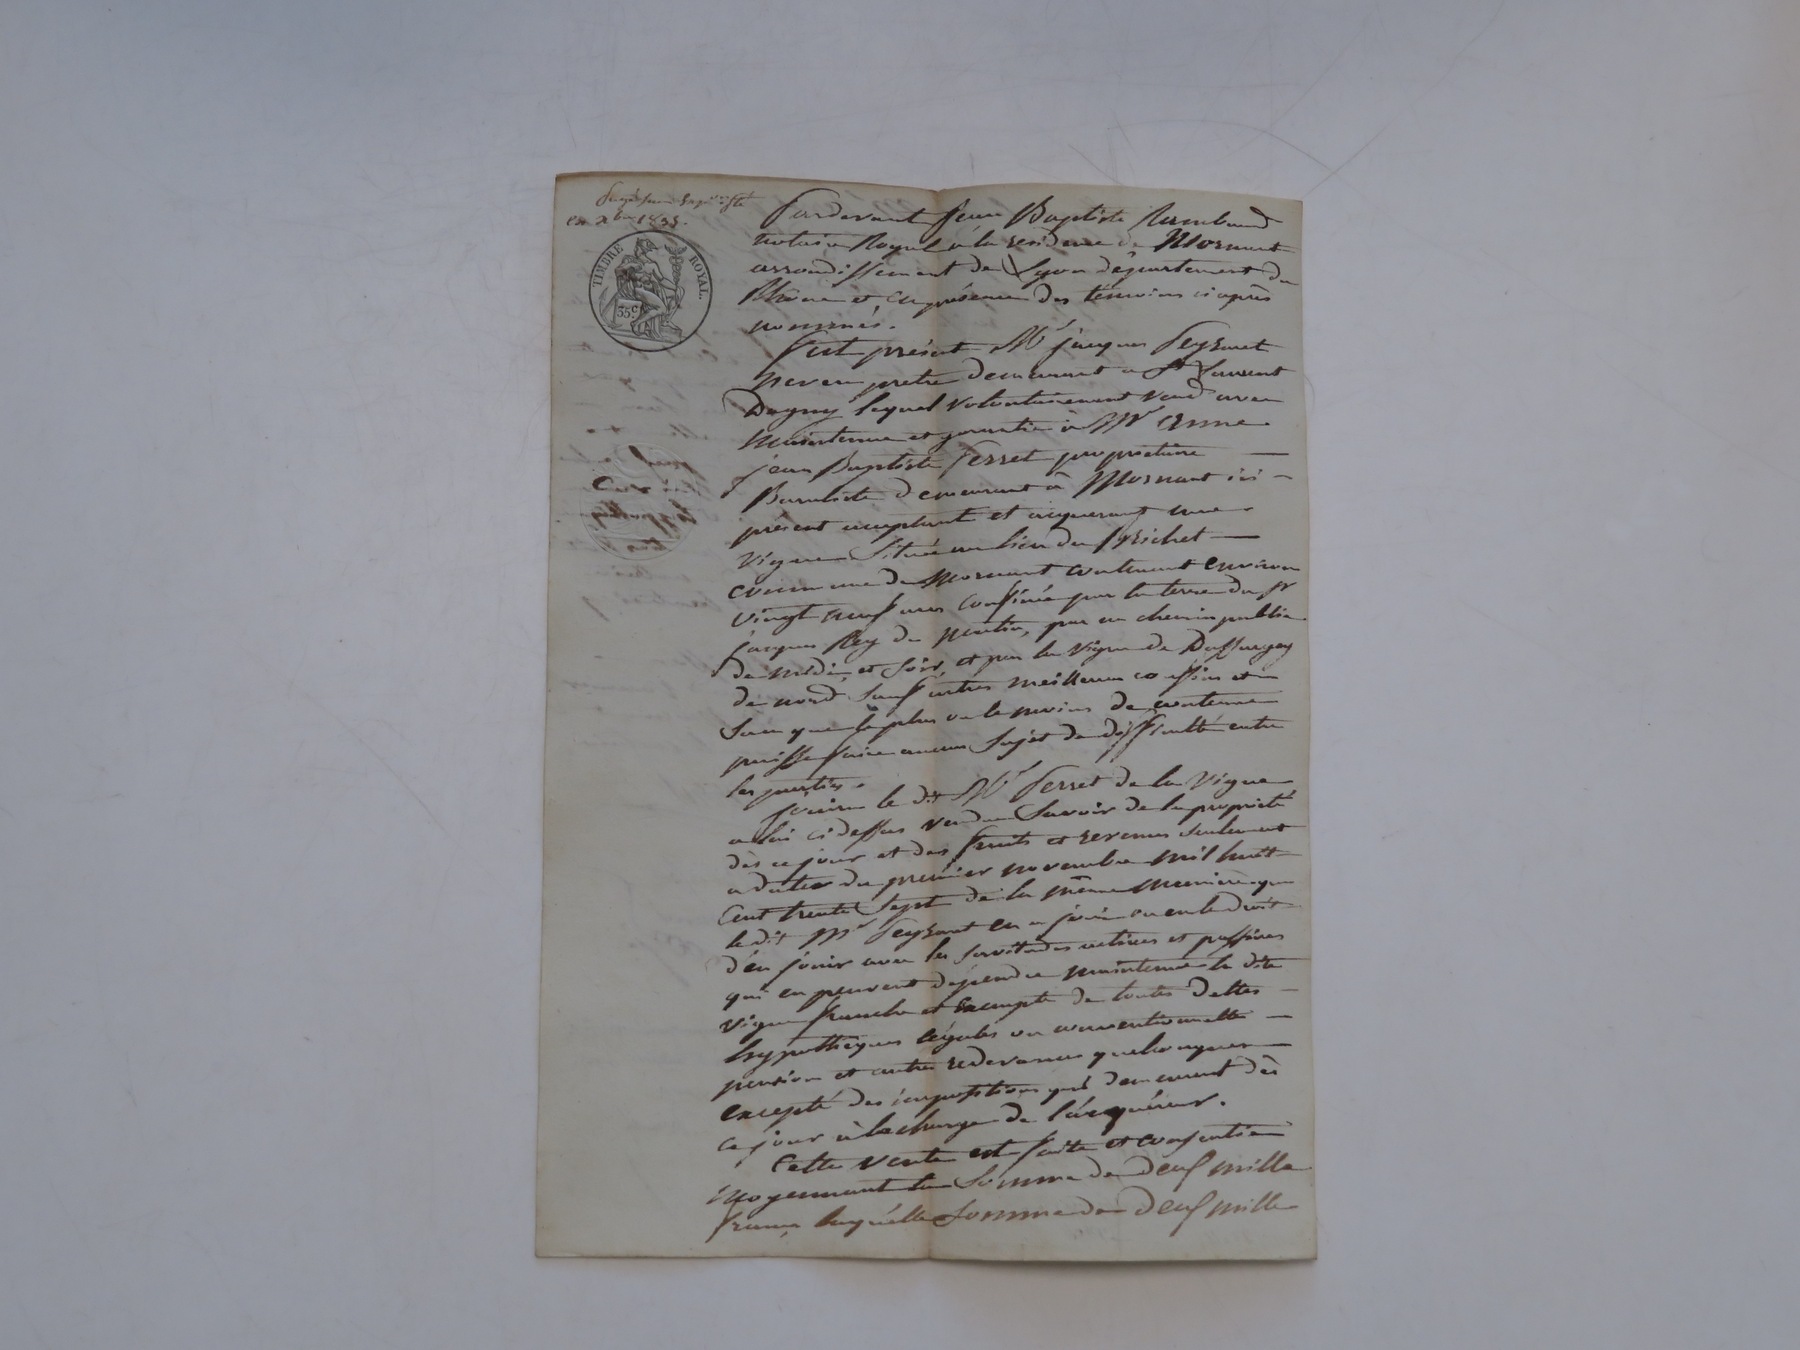 en Xbre 1838.
TIMBRE ROYAL.
35 c.
Pardevant Jean Baptiste
notaire Royal à la residence de Mornant
arrondissement de Lyon département du
Rhône et en présence des témoins ci après
nommés.
Fut présent Mr jacques Peyzaret
neveu pretre demeurant a St Laurent
Dagny lequel volontairement vend avec
maintenue et garantie à Mr Anne
jean Baptiste Ferret propriétaire
demeurant à Mornant ici
présent acceptant et acquerant une
vigne située au lieu du
commune de Mornant contenant environ
vingt neuf ares confinée par la terre du Sr
jacques Rey de matin, par un chemin public
de midi et soir, et par la vigne de
de nord sauf autres meilleurs confins et
sans que le plus ou le moins de contenue
puisse faire aucun sujet de difficulté entre
les parties.
Jouira le dit Mr Ferret de la vigne
a lui ci dessus vendue savoir de la propriété
dès ce jour et des fruits et revenus seulement
a dater du premier novembre mil huit
cent trente sept de la même manière que
le dit Mr Peyzaret en a joui ou eu le droit
d'en jouir avec les servitudes actives et passives
qui en peuvent dépendre maintenue la dite
vigne franche et exempte de toutes dettes
hypothèques légales ou conventionnelle
pension et autre redevances quelconques
excepté des impositions qui demeurent dès
ce jour à la charge de l'acquéreur.
Cette vente est faite et consentie
moyennant la somme de deux mille
francs laquelle somme de deux mille